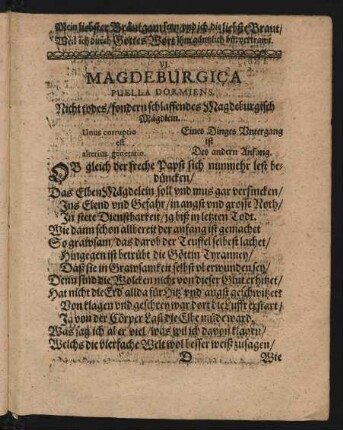 Mein liebster Bräutgam sey/ und ich die liebste Braut/
Weil ich durch Gottes Wort ihm
VI.
MAGDEBURGICA
PUELLA DORMIENS.
Nicht todes/ sondern schlaffendes Magdeburgisch
Mägdlein.
Unius corruptio Eines Dinges Vntergang
est ist
alterius generatio. Des andern Anfang.
OB gleich der freche Papst sich nunmehr lest be-
düncken/
Das Elben Mägdelein soll vnd mus gar versincken/
Ins Elend vnd Gefahr/ in angst vnd grosse Noth/
In stete Dienstbarkeit/ ja biß in letzten Todt.
Wie dann schon allbereit der anfang ist gemachet
So grawsam/ das darob der Teuffel selbest lachet/
Hingegen ist betrübt die Göttin Tyranney/
Daß sie in Grawsamkeit selbst vberwunden sey/
Denn sind die Wolcken nicht von dieser Glut erhitzet/
Hat nicht die Erd allda für Hitz vnd angst geschwitzet
Von klagen vnd geschrey war dort die Lufft erstart/
Ja von der Cörper Last die Elbe müde ward.
Was sag ich aber viel/ was wil ich davon klagen/
Welchs die vierfache Welt wol besser weiß zusagen/
D Wie